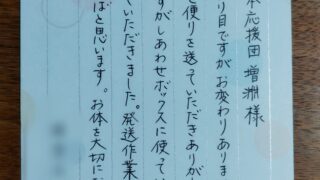 本応援団 増淵様
り目ですが お変わりありま
と便りを送っていただきありが
すがしあわせボックスに使って
ていただきました。発送作業
ばと思います。お体を大切に